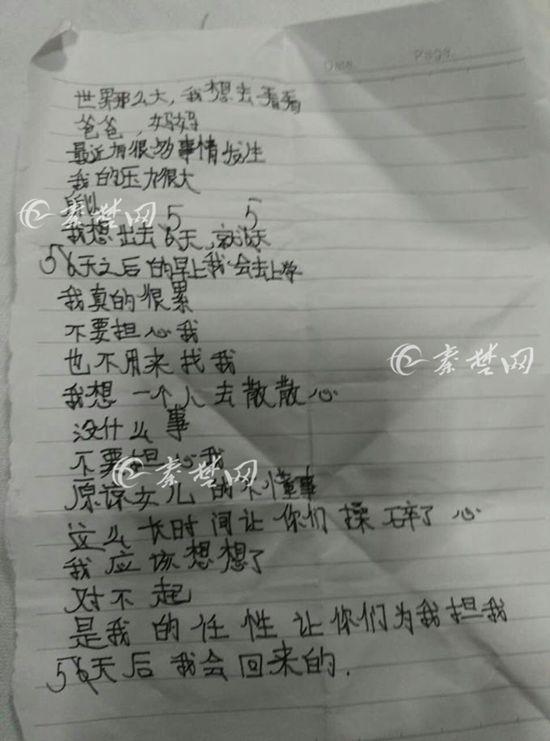 Date
Page
世界那么大，我想去看看
爸爸，妈妈
最近有很多事情发生
我的压力很大
所以
我想出去5天，就5天
5天之后的早上我会去上学
我真的很累
不要担心我
也不用来找我
我想一个人去散散心
没什么事
不要担心我
原谅女儿的不懂事
这么长时间让你们操碎了心
我应该想想了
对不起
是我的任性让你们为我担我
5天后我会回来的.
秦楚网
秦楚网
秦楚网